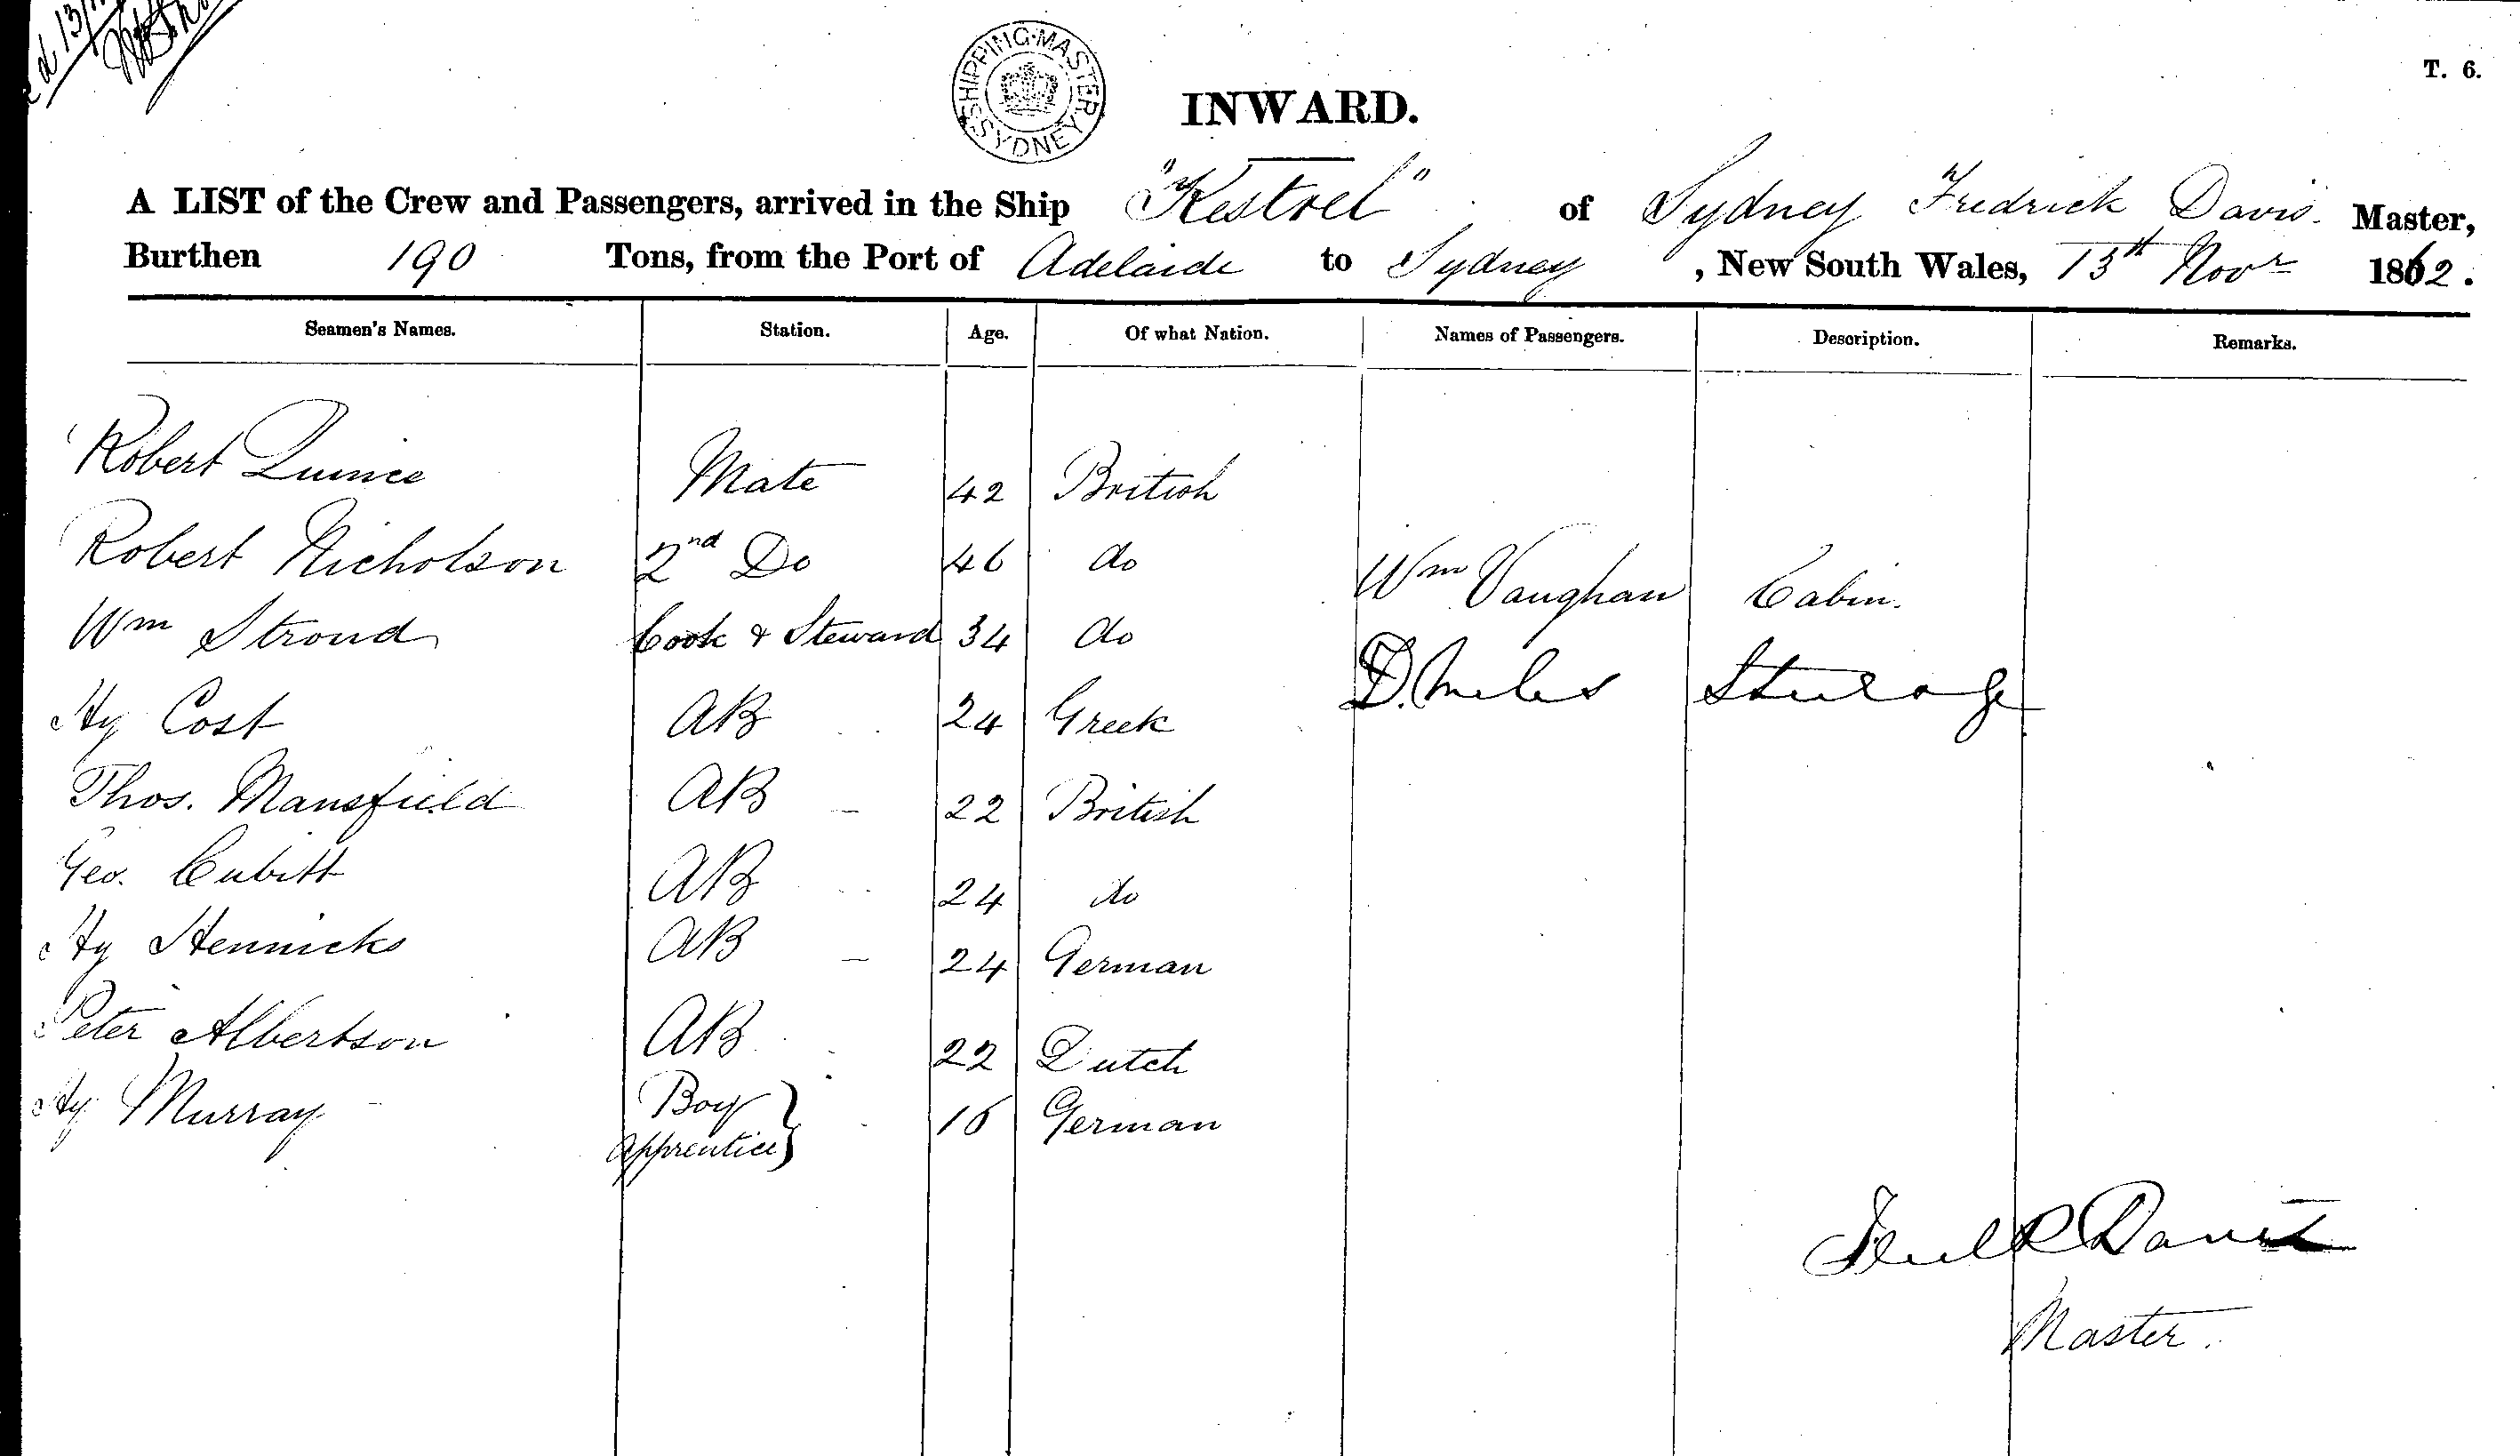 SHIPPING MASTER SYDNEY
T. 6.
INWARD.
A LIST of the Crew and Passengers, arrived in the Ship "Kestrel" of Sydney Fredrick Davis. Master,
Burthen 190 Tons, from the Port of Adelaide to Sydney, New South Wales, 13th Novr 1862.
Seamen's Names. Station. Age. Of what Nation. Names of Passengers. Description. Remarks.
Robert Quince Mate 42 British
Robert Nicholson 2nd Do 46 do
Wm Vaughan Cabin.
Wm Stroud Cook & Steward 34 do
D. Miles Steerage
Hy Cost AB 24 Greek
Thos. Mansfield AB 22 British
Geo. Cubitt AB 24 do
Hy Hennicks AB 24 German
Peter Albertson AB 22 Dutch
Hy Murray Boy 16 German
apprentice
Davis
Master.